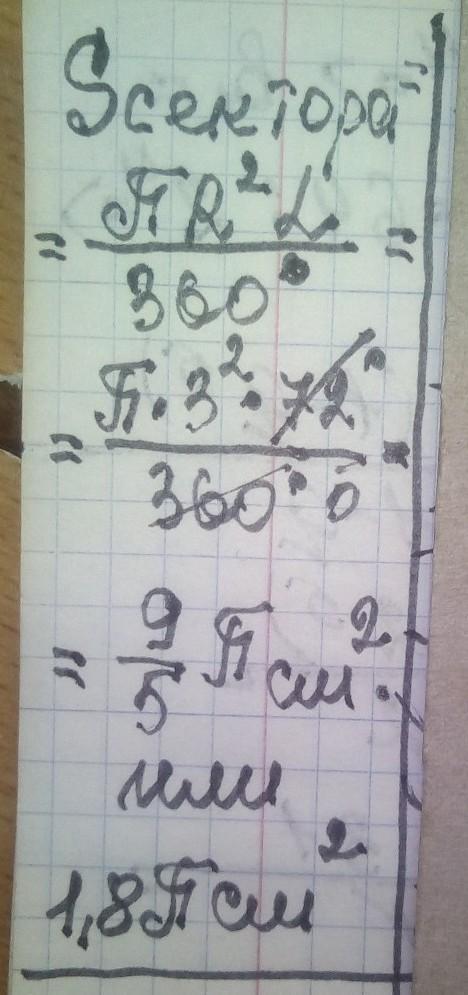 Sсектора =
= ПR² L / 360° =
= П · 3² · 72° / 360° 5 =
= 9/5 П см².
или
1,8П см²